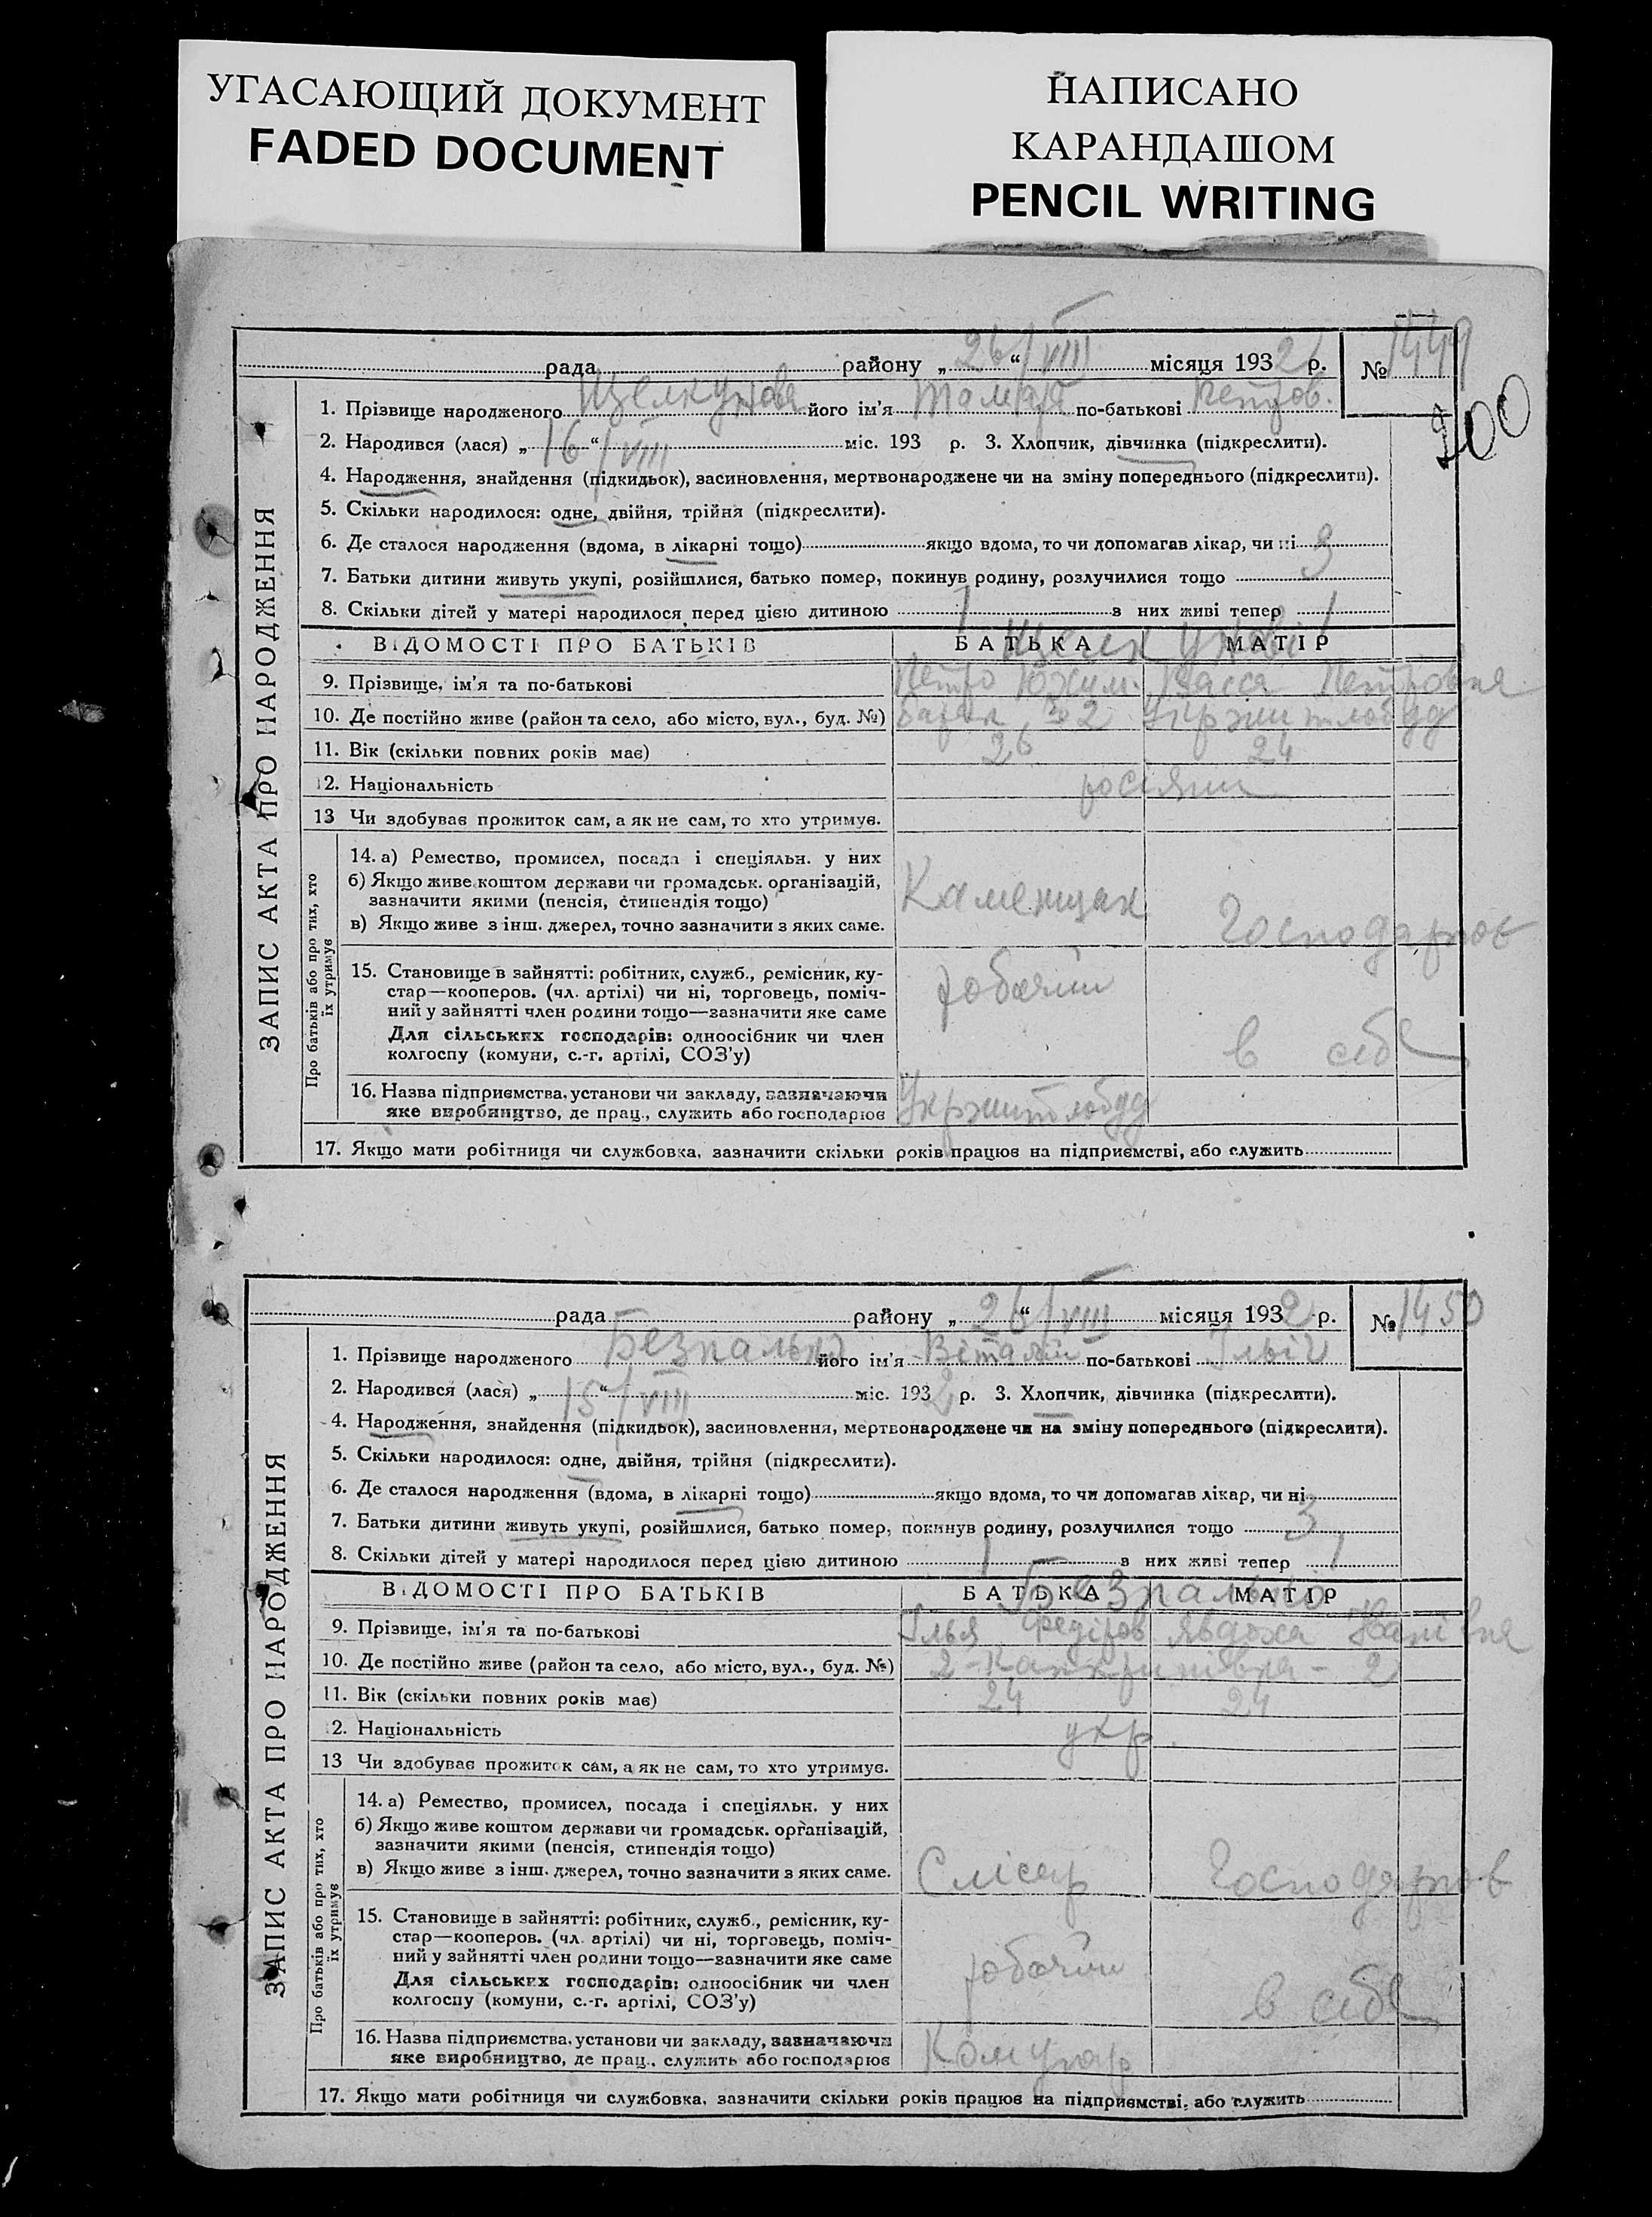 УГАСАЮЩИЙ ДОКУМЕНТ
FADED DOCUMENT
НАПИСАНО
КАРАНДАШОМ
PENCIL WRITING
рада району „26/VIII“ місяця 1932 р. № 1449
200
1. Прізвище народженого Щелкунова його ім'я Тамара по-батькові Петров.
2. Народився (лася) „16“/VIII міс. 193 р. 3. Хлопчик, дівчинка (підкреслити).
4. Народження, знайдення (підкидьок), засиновлення, мертвонароджене чи на зміну попереднього (підкреслити).
5. Скільки народилося: одне, двійня, трійня (підкреслити).
6. Де сталося народження (вдома, в лікарні тощо) якщо вдома, то чи допомагав лікар, чи ні
3
7. Батьки дитини живуть укупі, розійшлися, батько помер, покинув родину, розлучилися тощо
8. Скільки дітей у матері народилося перед цією дитиною 1 з них живі тепер 1
ВІДОМОСТІ ПРО БАТЬКІВ БАТЬКА МАТІР
Щелкунові
9. Прізвище, ім'я та по-батькові Петро Юхим. Васса Петровна
10. Де постійно живе (район та село, або місто, вул., буд. №) Барак 32 Укржитлобуд
11. Вік (скільки повних років має) 26 24
12. Національність росіяни
13 Чи здобуває прожиток сам, а як не сам, то хто утримує.
14. а) Ремество, промисел, посада і спеціяльн. у них
б) Якщо живе коштом держави чи громадськ. організацій,
зазначити якими (пенсія, стипендія тощо)
в) Якщо живе з інш. джерел, точно зазначити з яких саме.
Каменщик Господарює
15. Становище в зайнятті: робітник, служб., ремісник, ку-
стар—кооперов. (чл. артілі) чи ні, торговець, поміч-
ний у зайнятті член родини тощо—зазначити яке саме
Для сільських господарів: одноосібник чи член
колгоспу (комуни, с.-г. артілі, СОЗ'у)
робочий в себе
16. Назва підприємства, установи чи закладу, зазначаючи
яке виробництво, де прац., служить або господарює
Укржитлобуд
17. Якщо мати робітниця чи службовка, зазначити скільки років працює на підприємстві, або служить
ЗАПИС АКТА ПРО НАРОДЖЕННЯ
Про батьків або про тих, хто
їх утримує
рада району „26“/VIII місяця 1932 р. № 1450
1. Прізвище народженого Безпалько його ім'я Віталій по-батькові Ільіч
2. Народився (лася) „15“/VIII міс. 1932 р. 3. Хлопчик, дівчинка (підкреслити).
4. Народження, знайдення (підкидьок), засиновлення, мертвонароджене чи на зміну попереднього (підкреслити).
5. Скільки народилося: одне, двійня, трійня (підкреслити).
6. Де сталося народження (вдома, в лікарні тощо) якщо вдома, то чи допомагав лікар, чи ні
3
7. Батьки дитини живуть укупі, розійшлися, батько помер, покинув родину, розлучилися тощо
8. Скільки дітей у матері народилося перед цією дитиною 1 з них живі тепер 1
ВІДОМОСТІ ПРО БАТЬКІВ БАТЬКА МАТІР
Безпалько
9. Прізвище, ім'я та по-батькові Ілья Федіров Явдоха
10. Де постійно живе (район та село, або місто, вул., буд. №)
11. Вік (скільки повних років має) 24 24
12. Національність укр.
13 Чи здобуває прожиток сам, а як не сам, то хто утримує.
14. а) Ремество, промисел, посада і спеціяльн. у них
б) Якщо живе коштом держави чи громадськ. організацій,
зазначити якими (пенсія, стипендія тощо)
в) Якщо живе з інш. джерел, точно зазначити з яких саме.
Слісар Господарює
15. Становище в зайнятті: робітник, служб., ремісник, ку-
стар—кооперов. (чл. артілі) чи ні, торговець, поміч-
ний у зайнятті член родини тощо—зазначити яке саме
Для сільських господарів: одноосібник чи член
колгоспу (комуни, с.-г. артілі, СОЗ'у)
робочий в себе
16. Назва підприємства, установи чи закладу, зазначаючи
яке виробництво, де прац., служить або господарює
Комунар
17. Якщо мати робітниця чи службовка, зазначити скільки років працює на підприємстві, або служить
ЗАПИС АКТА ПРО НАРОДЖЕННЯ
Про батьків або про тих, хто
їх утримує